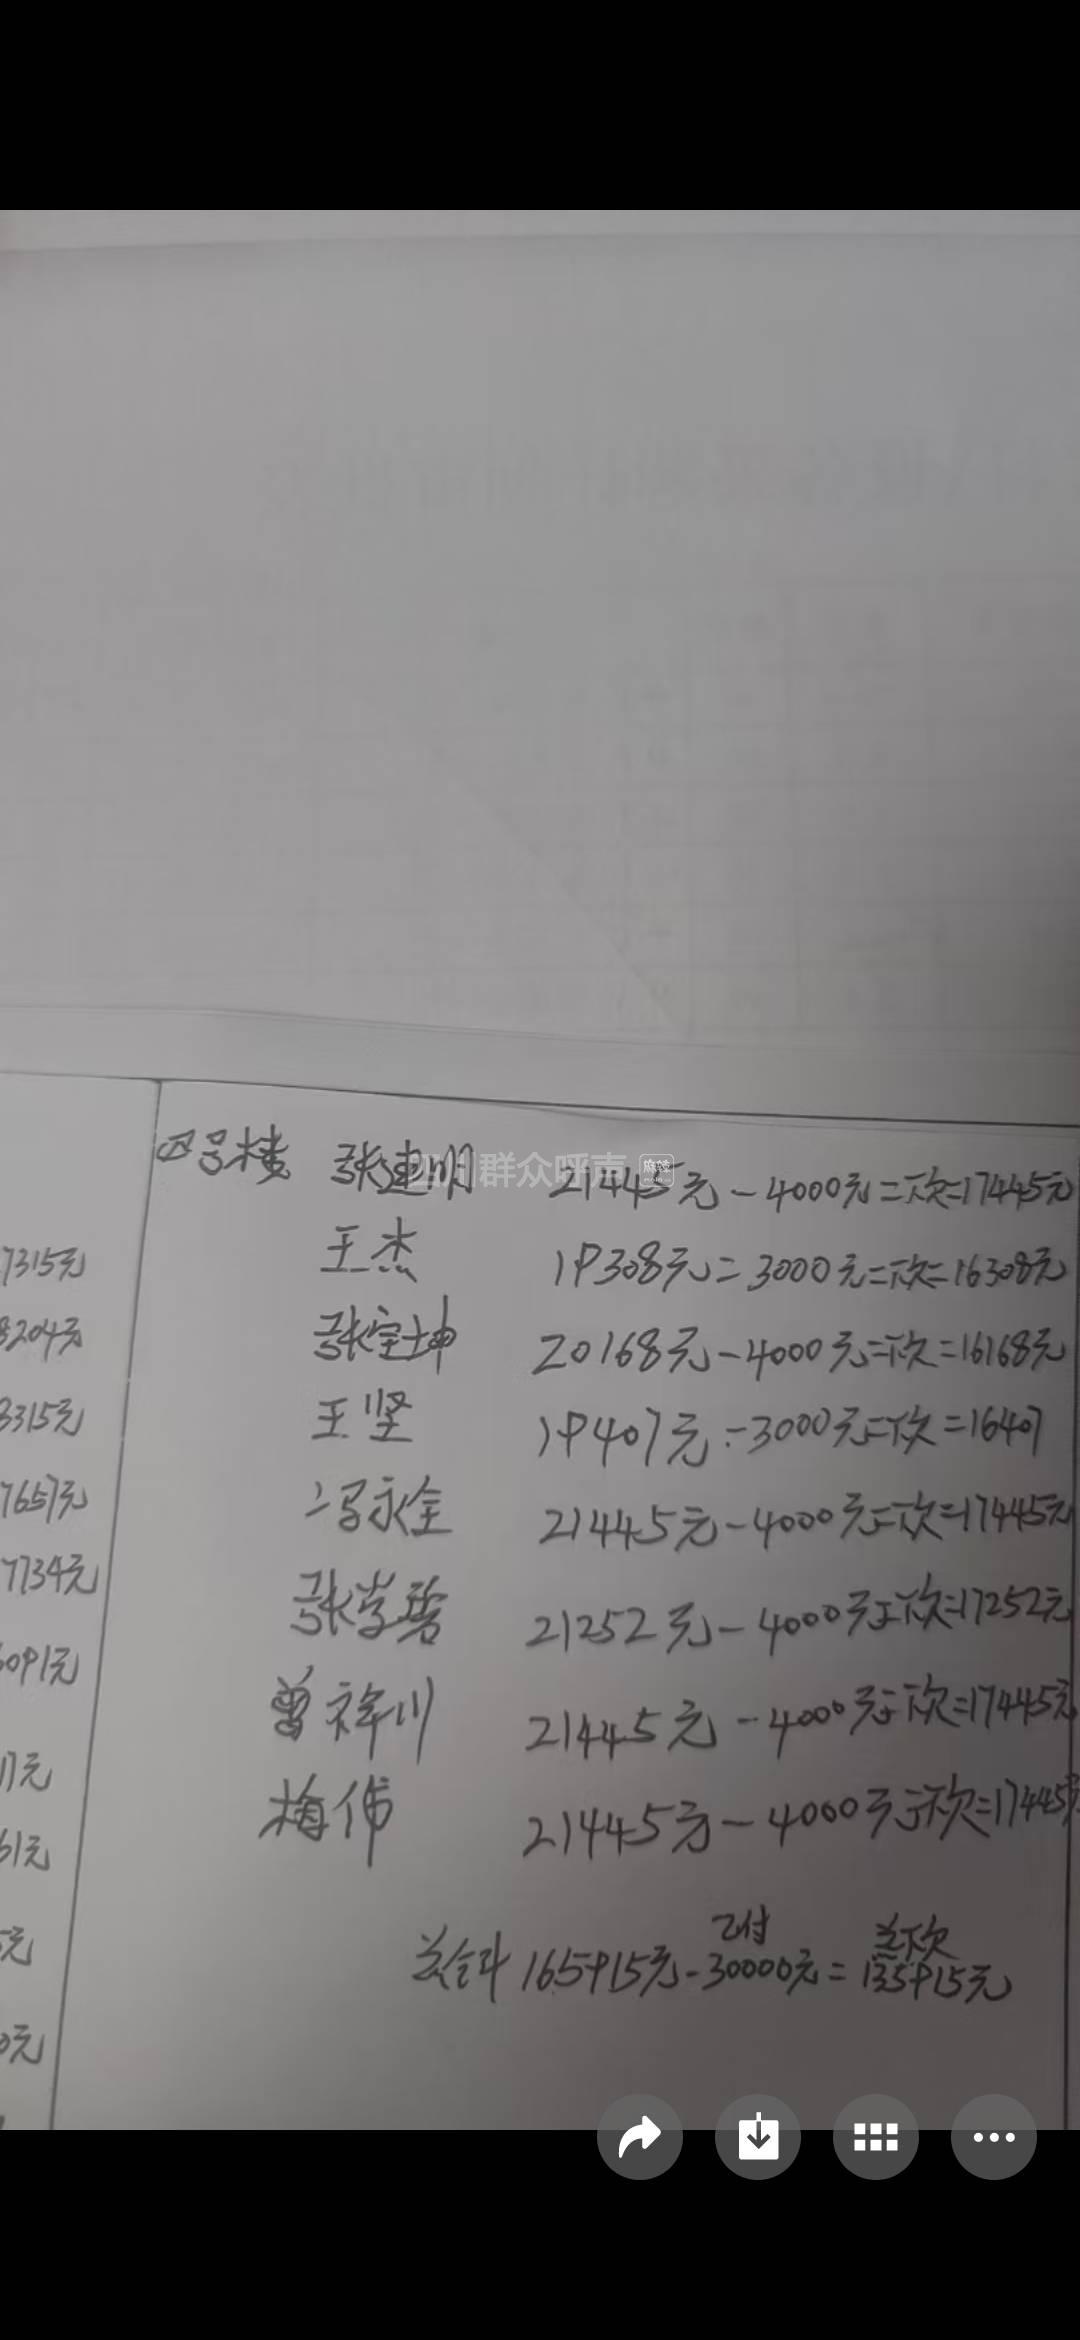 四号楼 张建明 21445元-4000元=下欠=17445元
王杰 19308元=3000元=下欠=16308元
张宝坤 20168元-4000元=下欠=16168元
王坚 19407元-3000元=下欠=16407
冯永全 21445元-4000元=下欠=17445元
张学碧 21252元-4000元=下欠=17252元
曾祥川 21445元-4000元=下欠=17445元
梅伟 21445元-4000元=下欠=17445元
已付 总下欠
总合计 165915元-30000元=135915元
7315元
8204元
3315元
7657元
7734元
6091元
17元
61元
5元
0元
四川群众呼声 麻辣